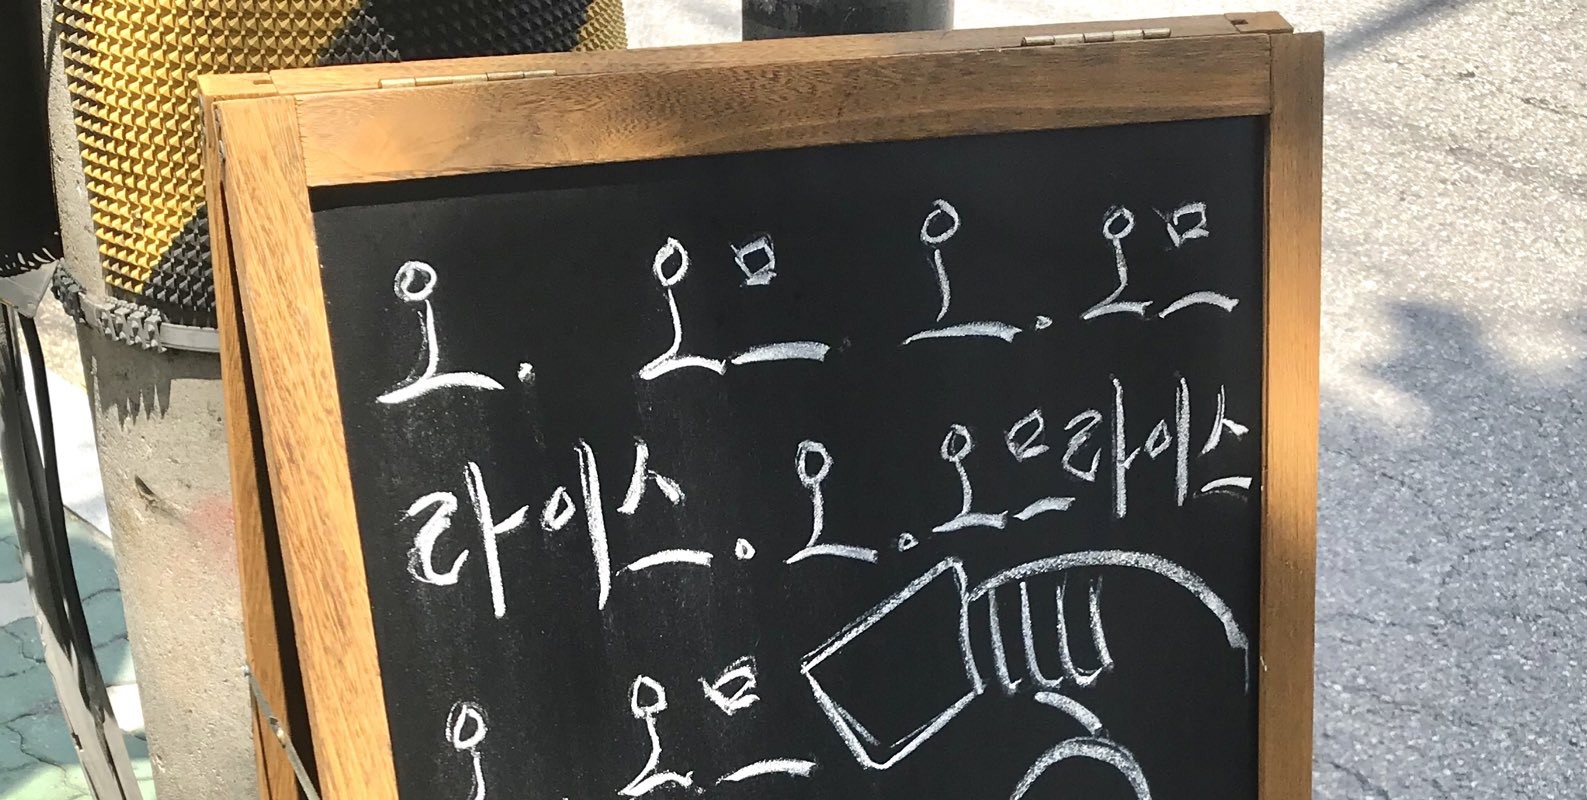 오. 오므 오. 오므
라이스. 오. 오므라이스
오 오므